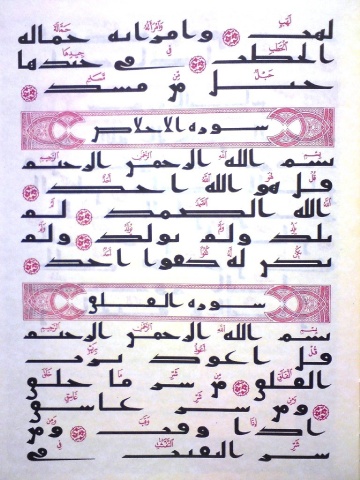 لهب ۝ وامراته حماله
الحطب ۝ في جيدها
حبل من مسد ۝
سورة الاخلاص
بسم الله الرحمن الرحيم
قل هو الله احد ۝
الله الصمد ۝ لم
يلد ولم يولد ۝ ولم
يكن له كفوا احد ۝
سورة الفلق
بسم الله الرحمن الرحيم
قل اعوذ برب
الفلق ۝ من شر ما خلق
۝ ومن شر غاسق
اذا وقب ۝ ومن
شر النفثت في